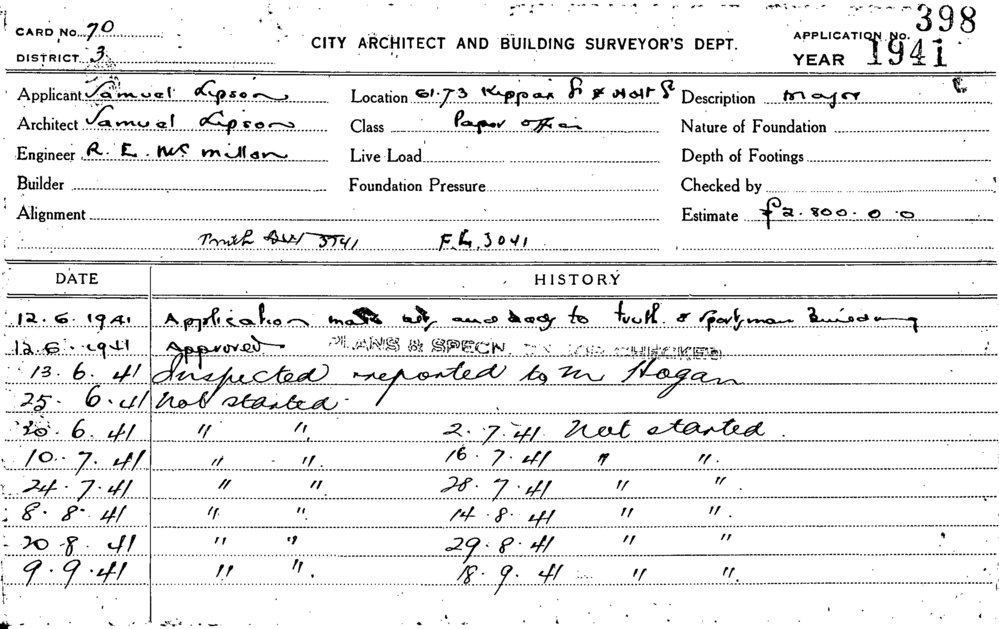 CARD NO. 70
DISTRICT 3
CITY ARCHITECT AND BUILDING SURVEYOR'S DEPT.
APPLICATION NO. 398
YEAR 1941
Applicant Samuel Lipson Location 61.73 Kippax St & Holt St Description Major
Architect Samuel Lipson Class Paper office Nature of Foundation
Engineer R. E. McMillan Live Load Depth of Footings
Builder Foundation Pressure Checked by
Alignment Estimate £2.800.0.0
3741 F.L. 3041
DATE HISTORY
12.6.1941 Application and to Truth & Sportsman Building
12.6.1941 Approved PLANS & SPECN. CHECKED
13.6.41 Inspected reported to Mr Hogan
25.6.41 Not started
30.6.41 " " 2.7.41 Not started
10.7.41 " " 16.7.41 " "
24.7.41 " " 28.7.41 " "
8.8.41 " " 14.8.41 " "
20.8.41 " " 29.8.41 " "
9.9.41 " " 18.9.41 " "